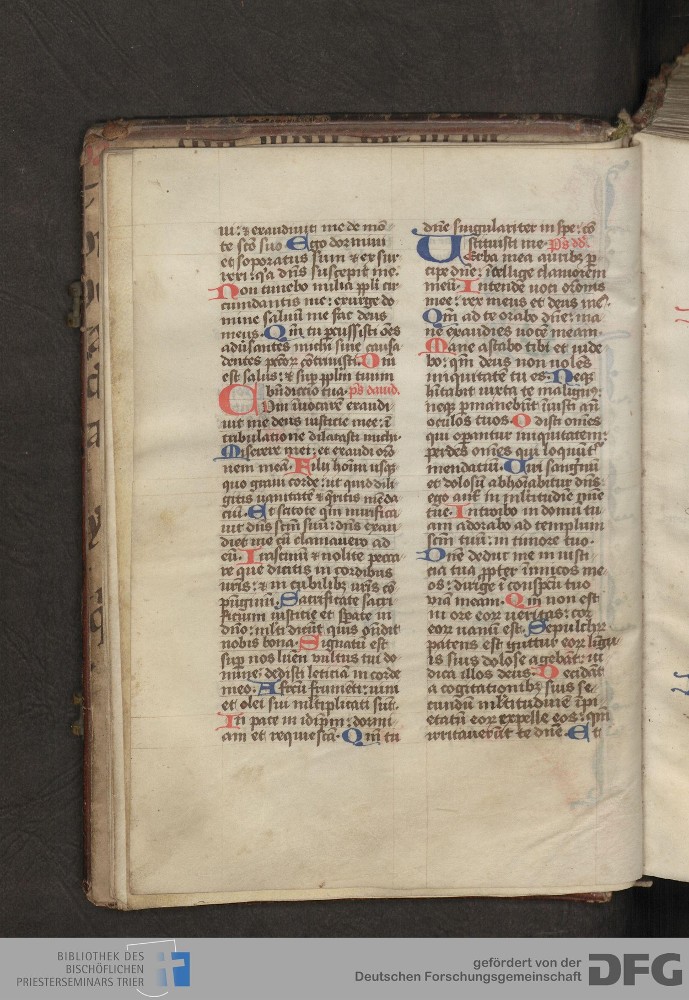 ui: et exaudiuit me de mō
te scō suo Ego dormiui
et soporatus sum et exsur
rexi: qꝛa dn̄s suscepit me.
Non timebo milia ppl̄i cir
cumdantis me: exurge do
mine saluū me fac deus
meus. Qm̄ tu ꝑcussisti oēs
adūsantes michi sine causa
dentes pctōꝝ cōtriuisti. Dn̄i
est salus: et suꝑ ppl̄m tuum
bn̄diccio tua. ps dauid.
Cum īuocarē exaudi
uit me deus iusticie mee: ī
tribulatione dilatasti michi.
Miserere mei: et exaudi orō
nem meā. Filij hoīm usq
quo graui corde: ut quid dili
gitis uanitatē et q̄ritis mēda
ciū. Et scitote qm̄ mirifica
uit dn̄s scm̄ suū: dn̄s exau
diet me cū clamauero ad
eū. Irascimī et nolite pecca
re que dicitis in cordibus
uris: et in cubilibꝫ uris cō
pūgimī. Sacrificate sacri
ficium iusticie et sꝑate in
dn̄o: mlti dicūt quis ondit
nobis bona. Signatū est
suꝑ nos lumē uultus tui do
mine: dedisti leticiā in corde
meo. A fructu frumēti: uini
et olei sui mltiplicati sūt.
In pace in idipm̄: dormi
am et requiescā. Qm̄ tu
dn̄e singulariter in spe: cō
stituisti me. Ps dd̄.
Uerba mea auribꝫ ꝑ
cipe dn̄e: ītellige clamorem
meū. Intende uoci orōnis
mee: rex meus et deus mes
Qm̄ ad te orabo dn̄e: ma
ne exaudies uocē meam.
Mane astabo tibi et uide
bo: qm̄ deus non uolēs
iniquitatē tu es. Neqꝫ
hītabit iuxta te malignꝰ:
neqꝫ ꝑmanebūt iniusti an̄
oculos tuos. Odisti omēs
qui oꝑantur iniquitatem:
ꝑdes omēs qui loquūt
mendatiū. Uirū sanguinū
et dolosū abhoīabitur dn̄s:
ego autē in mltitudiē mīe
tue. Introibo in domū tu
am adorabo ad templum
scm̄ tuū: in timore tuo.
Dn̄e deduc me in iusti
cia tua ꝓpter inimicos me
os: dirige ī conspcū tuo
uiā meam. Qm̄ non est
in ore eoꝝ ueritas: cor
eoꝝ uanū est. Sepulchꝝ
patens est guttur eoꝝ lingu
is suis dolose agebāt: iu
dica illos deus. Decidāt
a cogitationibꝫ suis se
cundū mltitudinē īpi
etatū eoꝝ expelle eos: qm̄
irritauerūt te dn̄e. Et
BIBLIOTHEK DES
BISCHÖFLICHEN
PRIESTERSEMINARS TRIER
gefördert von der
Deutschen Forschungsgemeinschaft
DFG